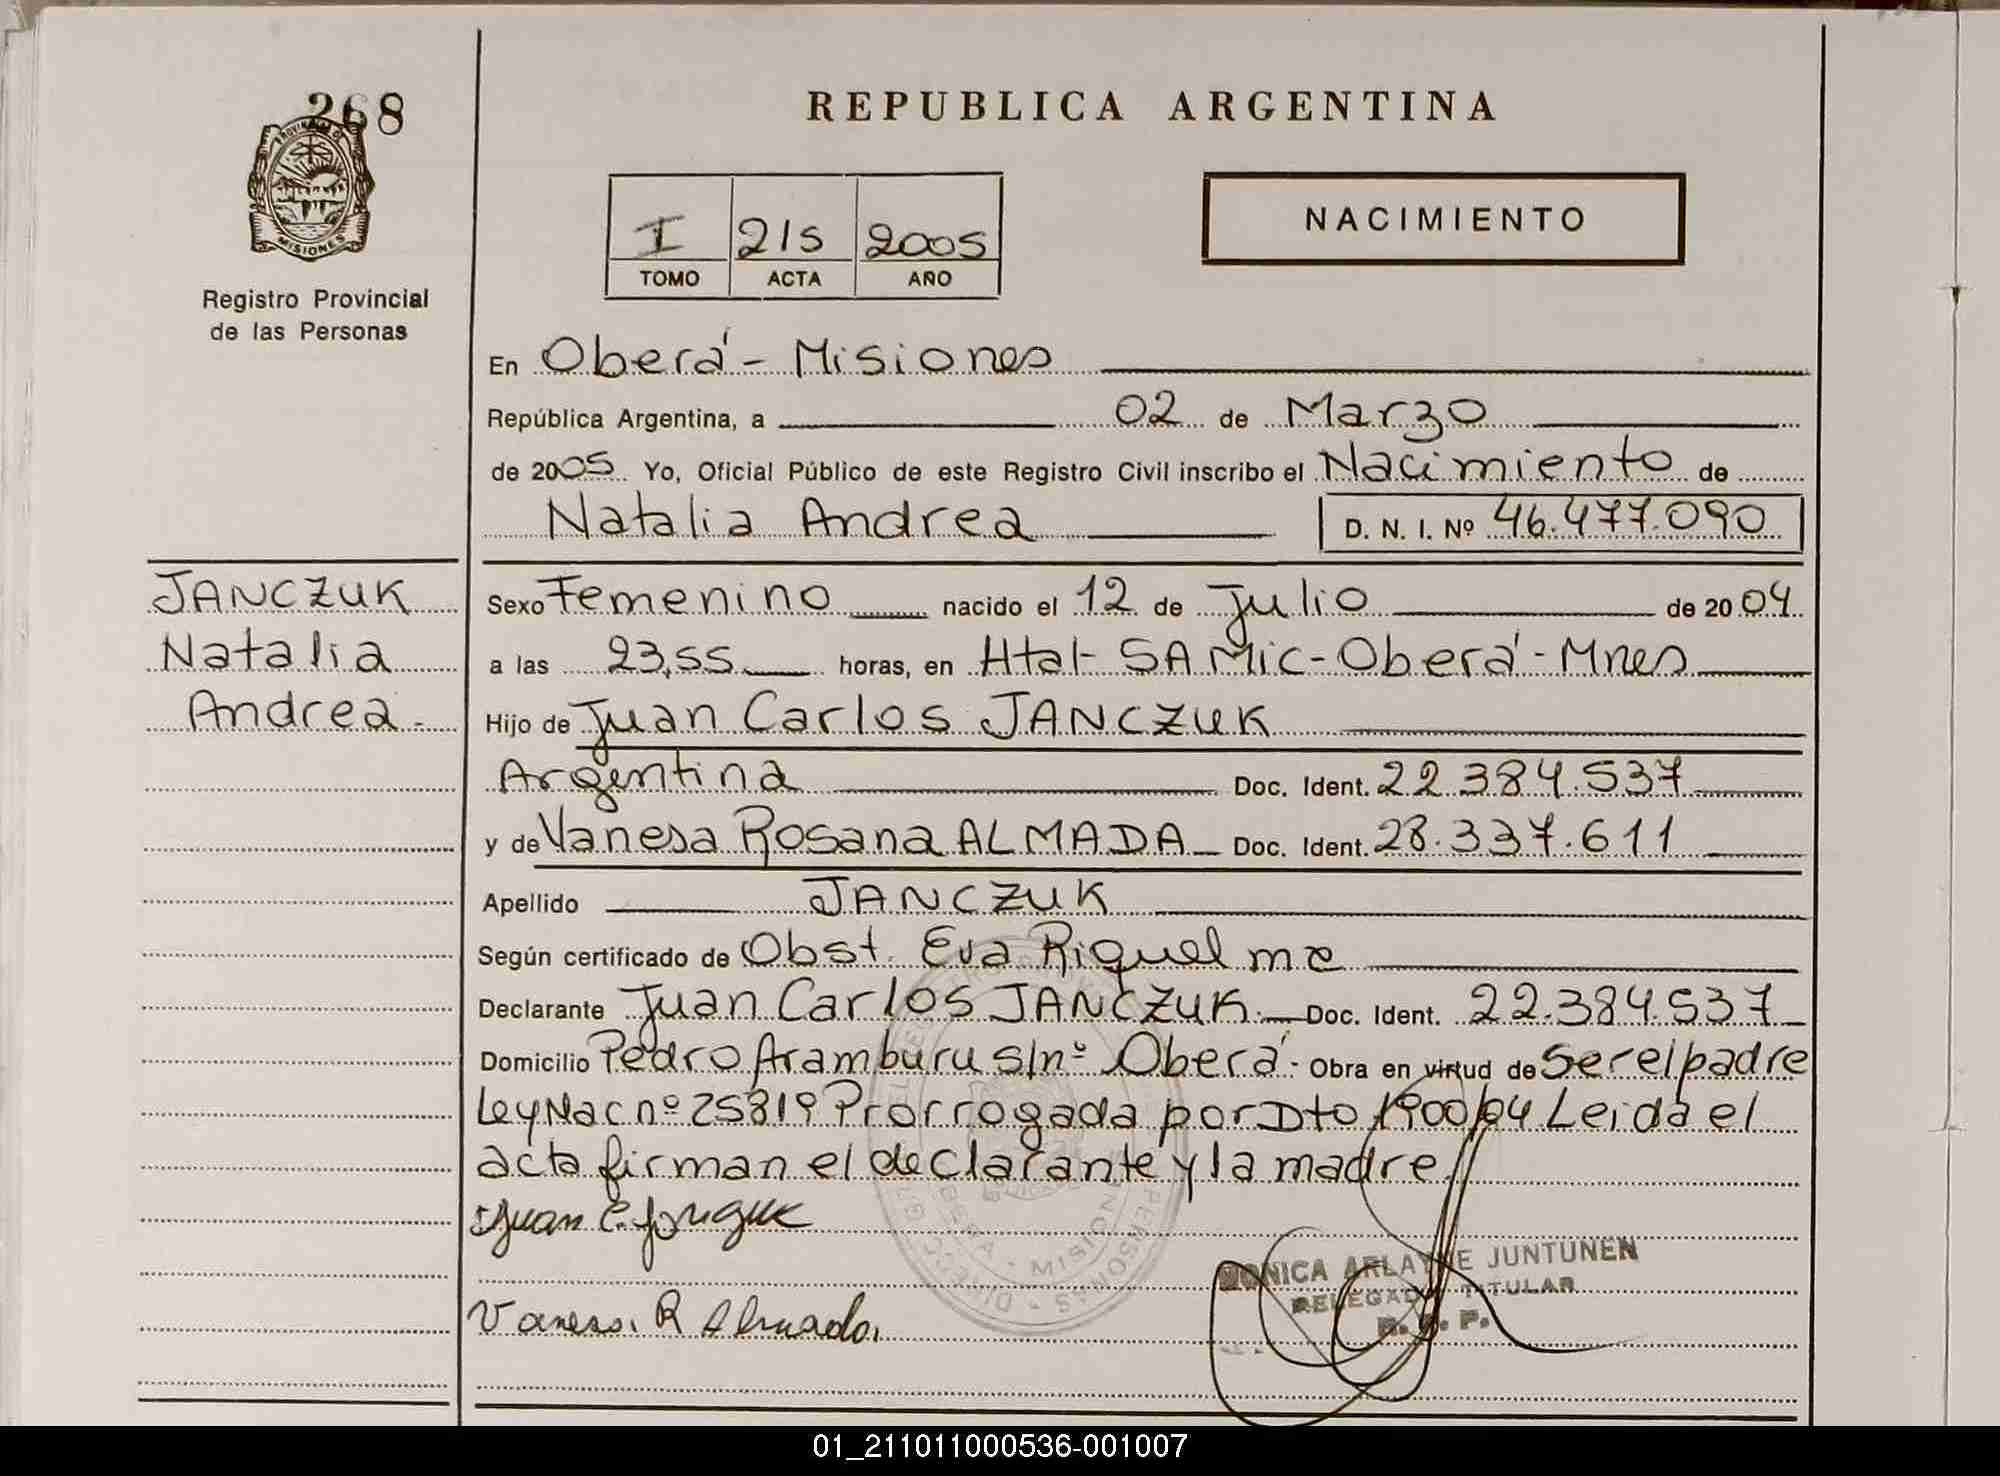 268
PROVINCIA DE
MISIONES
Registro Provincial
de las Personas
REPUBLICA ARGENTINA
I 215 2005
TOMO ACTA AÑO
NACIMIENTO
En Oberá - Misiones
República Argentina, a 02 de Marzo
de 2005 Yo, Oficial Público de este Registro Civil inscribo el Nacimiento de
Natalia Andrea D. N. I. Nº 46.477.090
JANCZUK
Natalia
Andrea.-
Sexo Femenino nacido el 12 de Julio de 2004
a las 23,55 horas, en Htal- SAMic- Oberá - Mnes
Hijo de Juan Carlos JANCZUK
Argentina Doc. Ident. 22.384.537
y de Vanesa Rosana ALMADA Doc. Ident. 28.337.611
Apellido JANCZUK
Según certificado de Obst. Eva Riquelme
Declarante Juan Carlos JANCZUK. Doc. Ident. 22.384.537
Domicilio Pedro Aramburu s/nº Oberá - Obra en virtud de Ser el padre
Ley Nac nº 25819 Prorrogada por Dto 1900/04 Leida el
acta firman el declarante y la madre
Juan C.
Vanesa R Almada
MONICA ARLAYNE JUNTUNEN
DELEGADA TITULAR
R. P. P.
MISIONES
PERSONAS
01_211011000536-001007